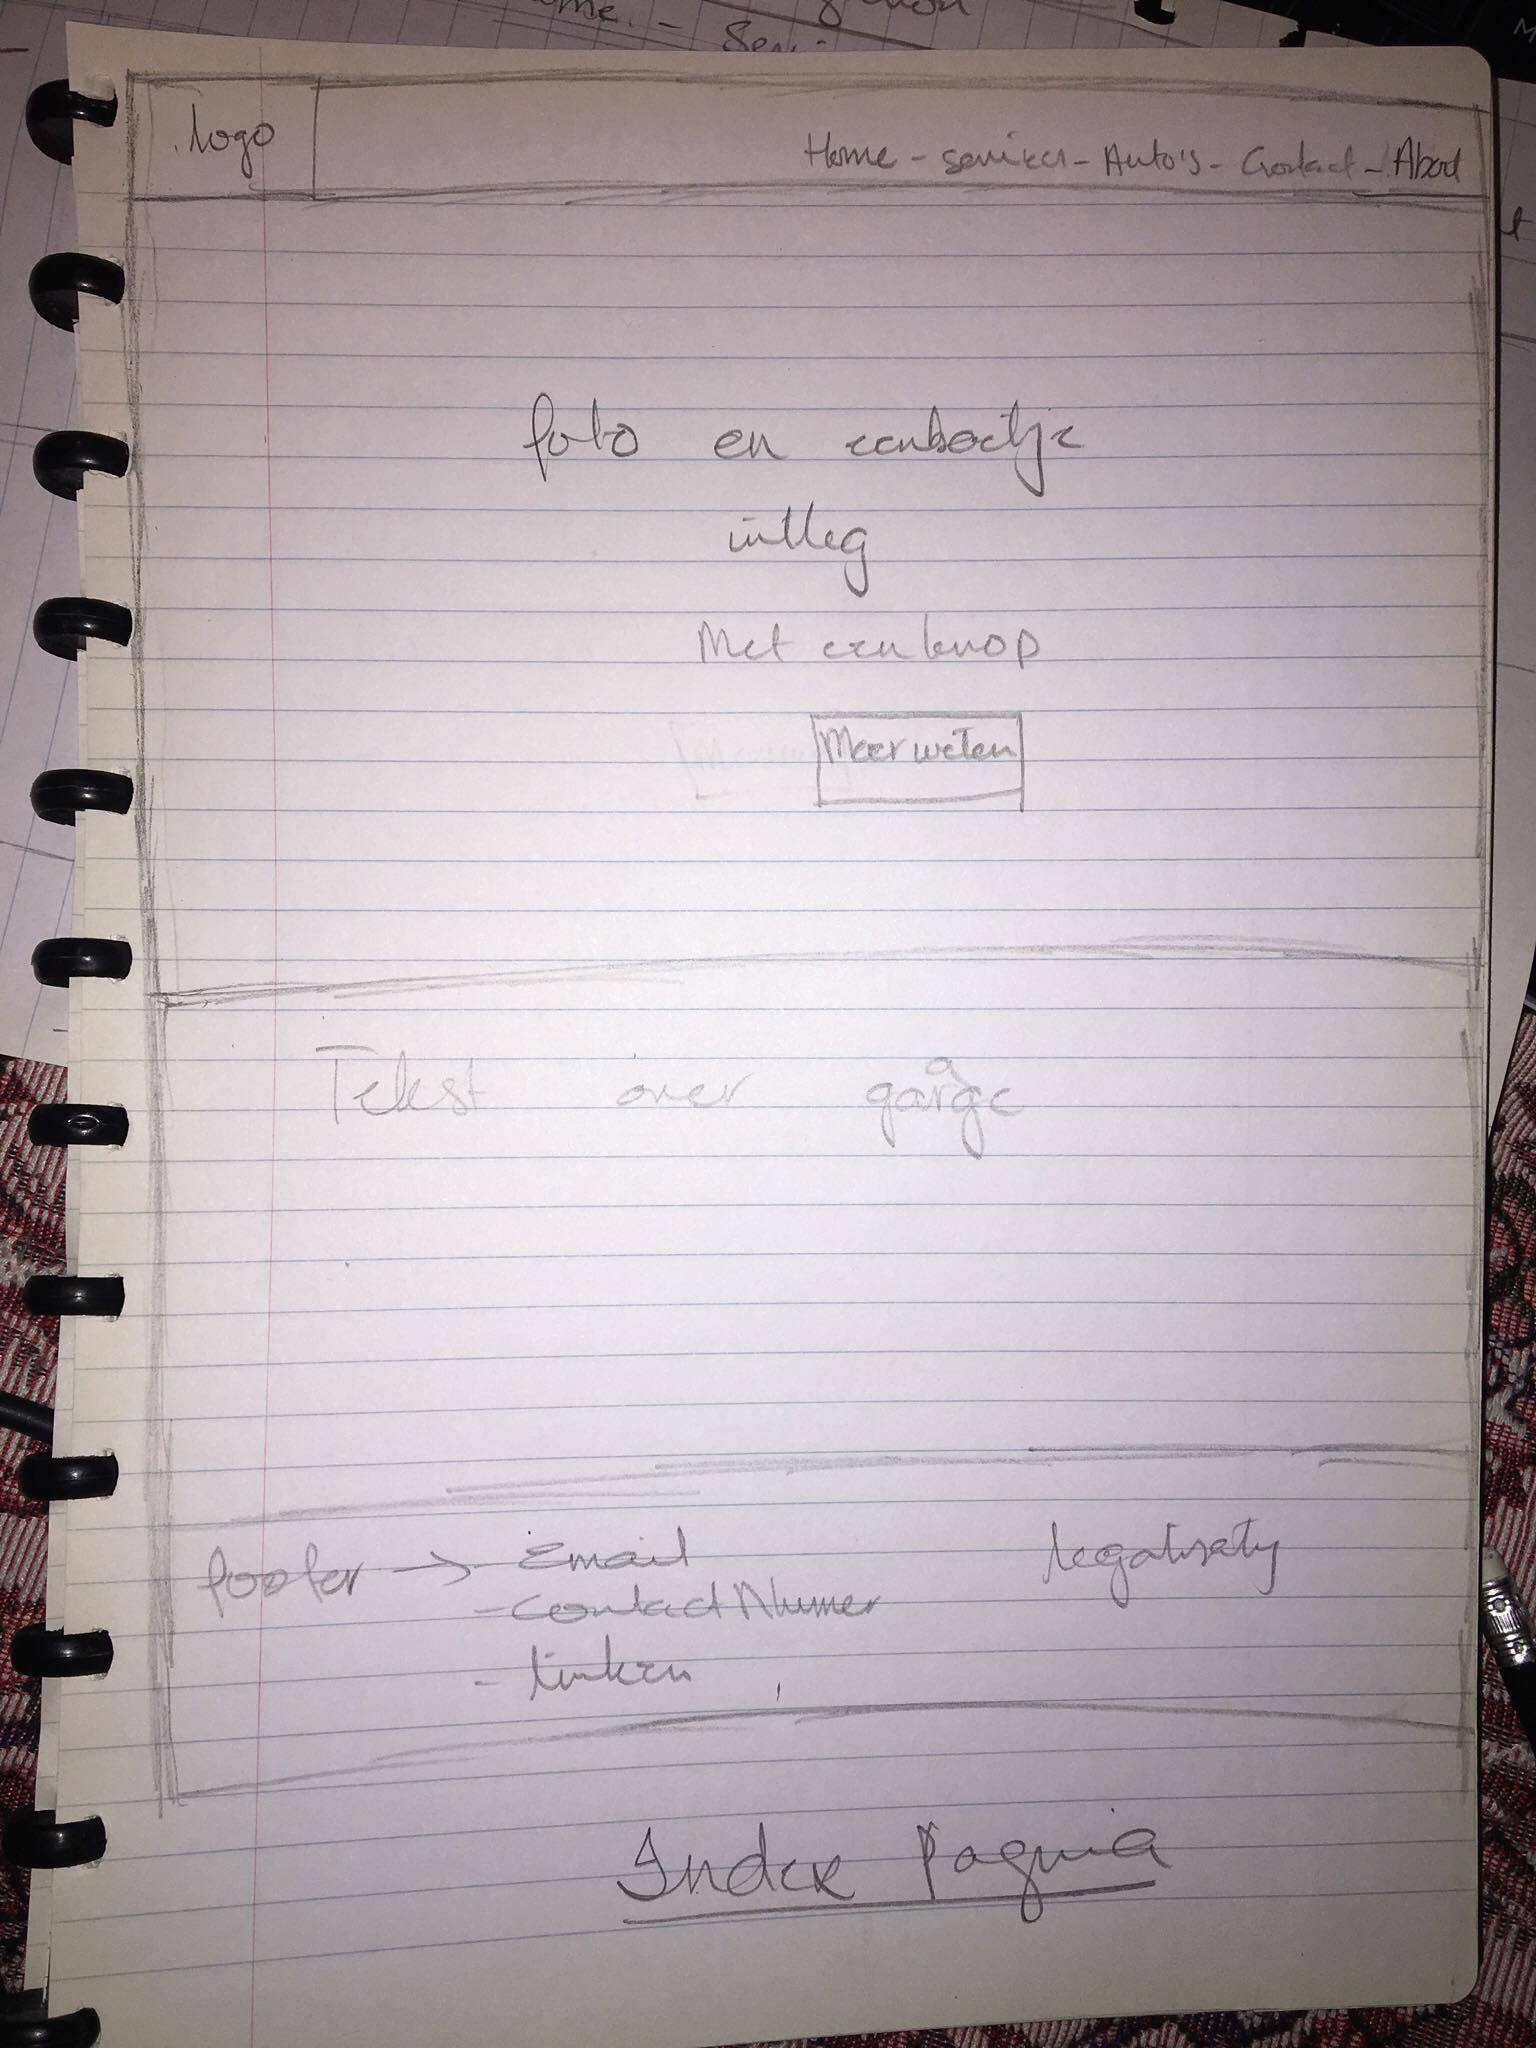 logo
Home - services - Auto's - Contact - About
foto en een beetje
uitleg
Met een knop
Meer weten
Tekst over garage
footer → - Email
- Contact Numer
- linken
Index Pagina